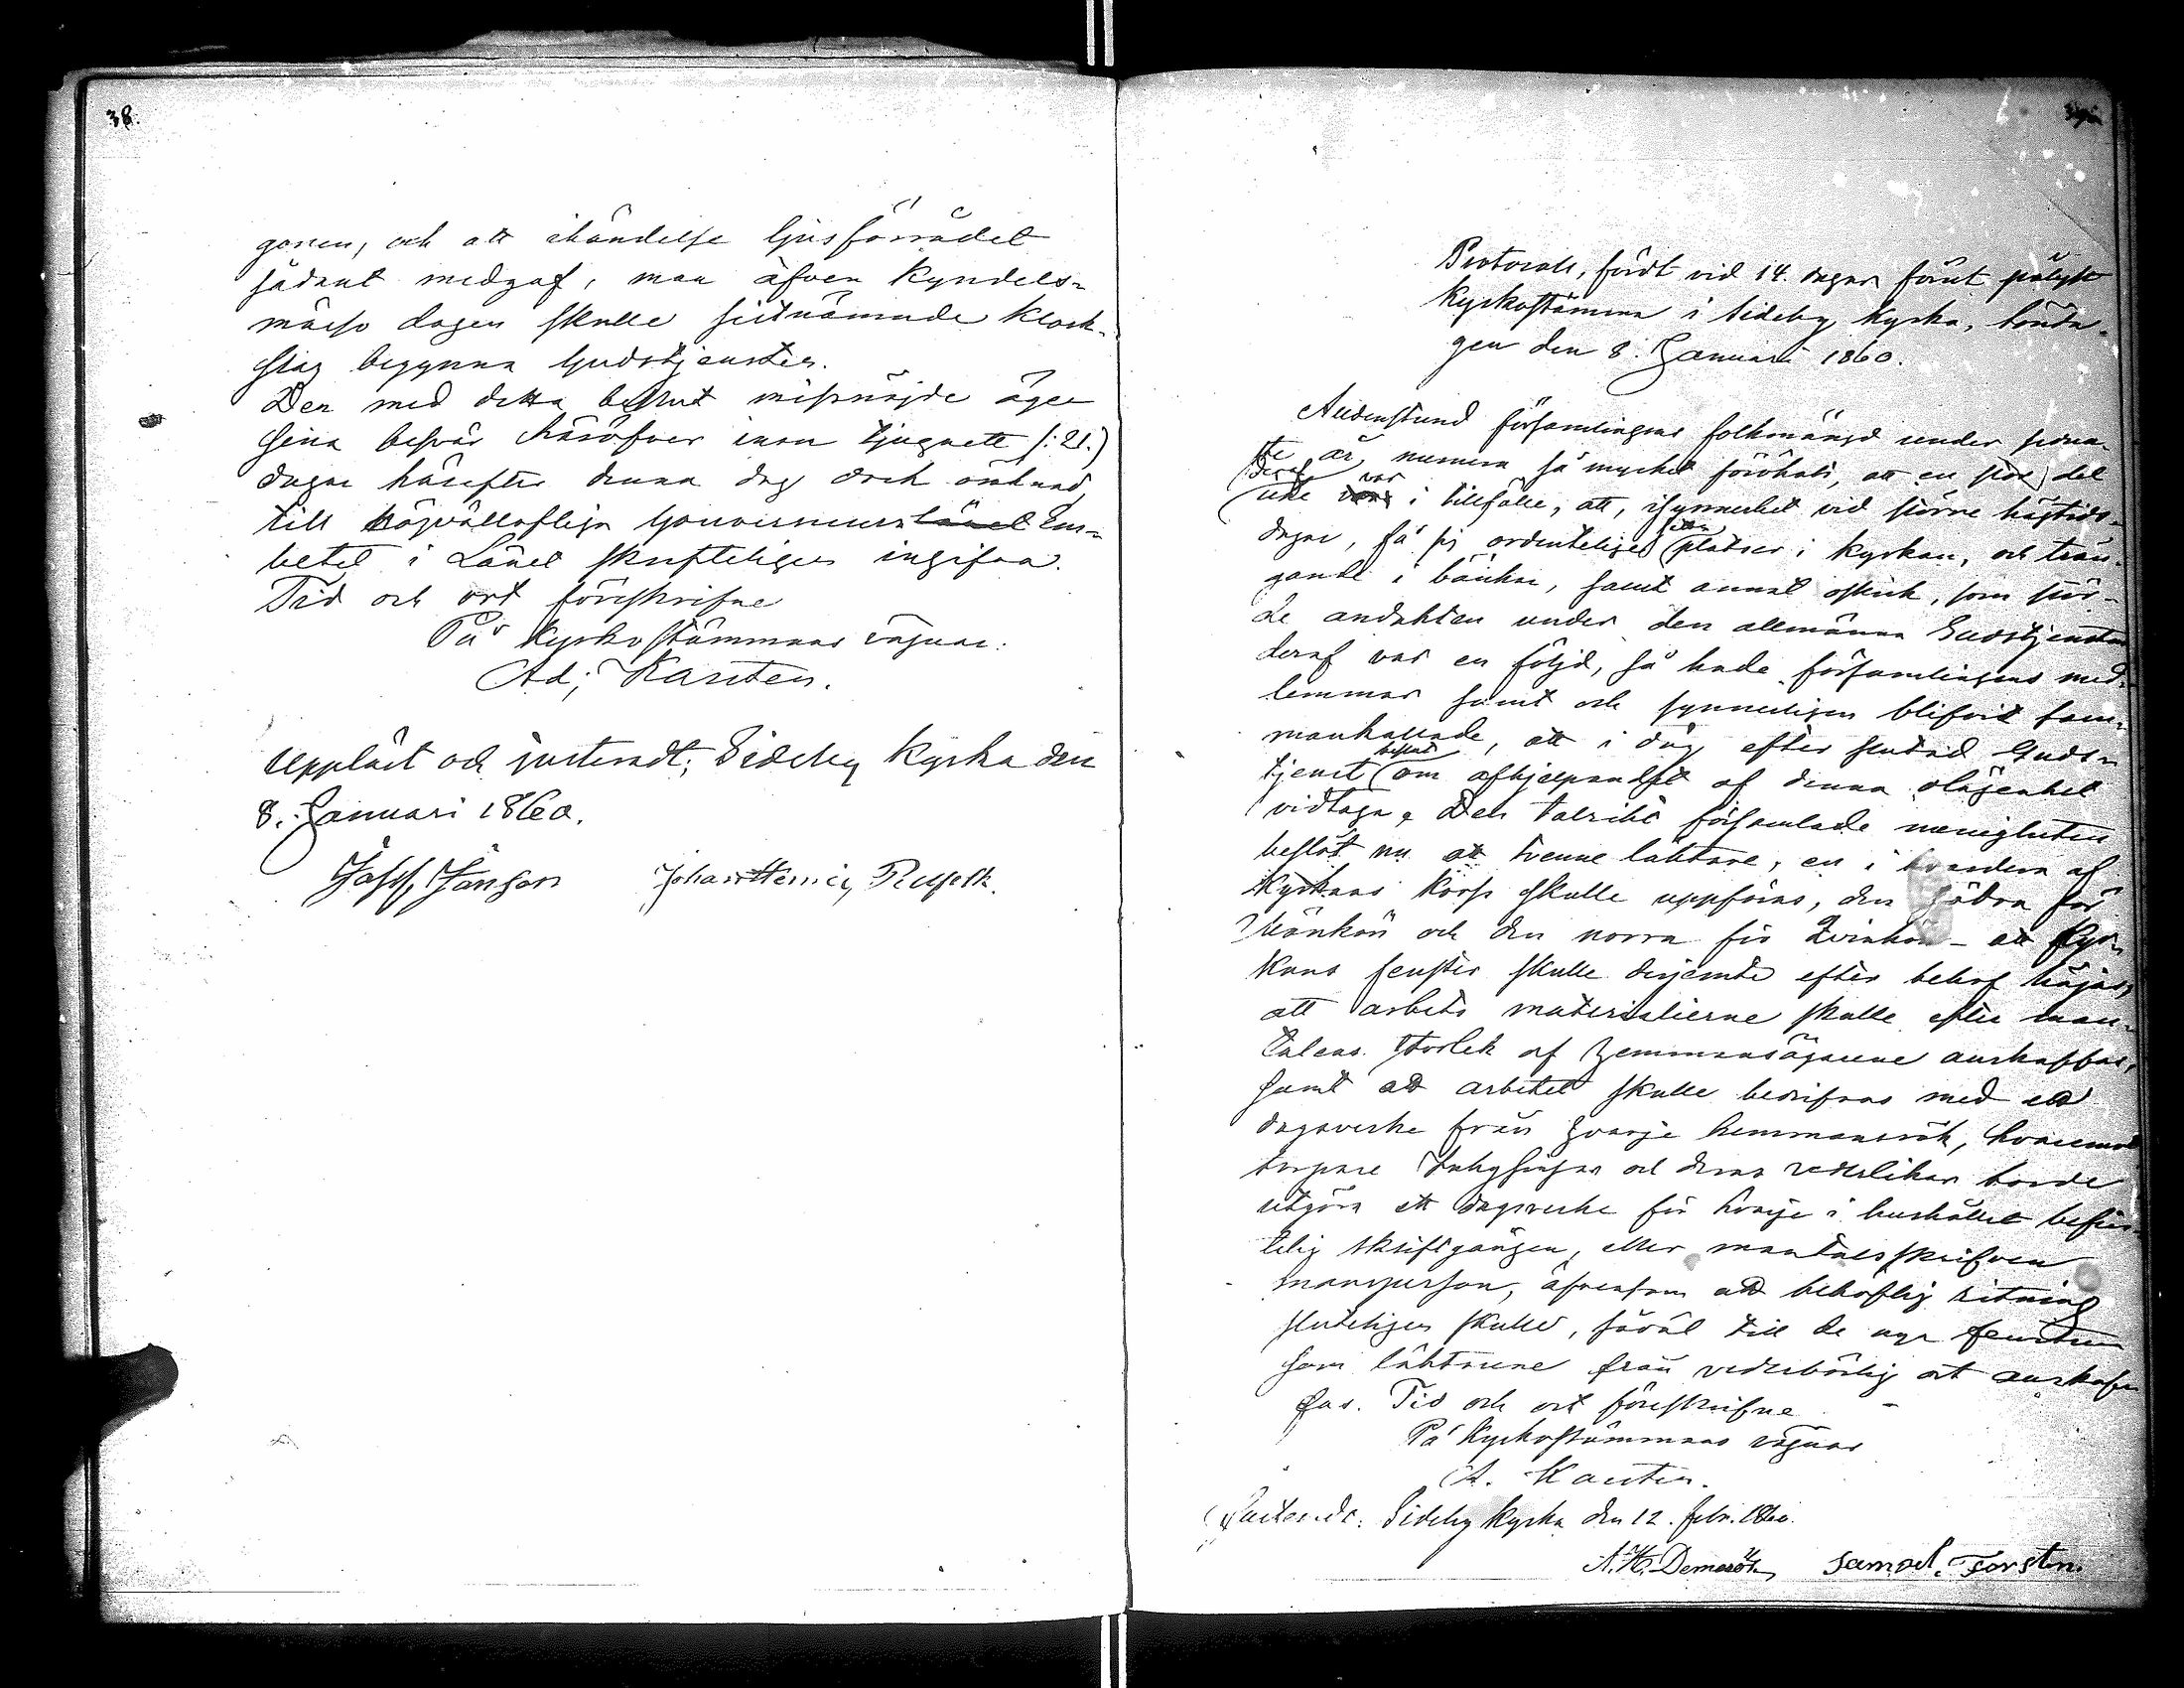 38.
gonen, och att ihändelse ljusförrådet
sådant medgaf, man äfven Kyndels-
mässo dagen skulle sistnämnde klock-
slag begynna Gudstjensten.
Den med detta beslut missnöjde äger
sina besvär häröfver inom tjuguett (:21.)
dagar härefter denna dag oräknad
till Högvällofliga Gouverneurs länet Em-
betet i Länet skrifteligen ingifva.
Tid och ort föreskrifne
På Kyrkostämmans vägnar:
Ad; Kanten.
Uppläst och justeradt; Sideby Kyrka den
8. Januari 1860.
Josef Jånson Johan Henric
39.
Protocoll, fördt vid 14. dagar förut pålyst
Kyrkostämma i Sideby Kyrka, Sönda-
gen den 8. Januari 1860.
Alldenstund församlingens folkmängd under sedna-
ste år numera så mycket förökats, att en stor del
deraf var
icke vore i tillfälle, att, isynnerhet vid större högtids-
dagar, få sig ordenteliga platser i kyrkan, och trän-
gande i bänkar, samt annat oskick, som stör-
de andakten under den allmänna Gudstjensten
deraf var en följd, så hade församlingens med-
lemmar samt och synnerligen blifvit sam-
mankallade, att i dag efter slutad Guds-
beslut
tjenst om afhjelpandet af denna olägenhet
vidtaga. Den talrikt församlade menigheten
beslöt nu att tvenne läktare, en i hvardera af
Kyrkans Korss skulle uppföras, den södra för
Mankön och den norra för Qvinkön - att Kyr-
kans fenster skulle derjemte efter behof höjas,
att arbets materialierne skulle efter man-
talens storlek af Hemmansägarene anskaffas,
samt att arbetet skulle bedrifvas med ett
dagsverke från hvarje hemmansrök, hvaremot
torpare Inhysingar och deras vederlikar borde
utgöra ett dagsverke för hvarje i hushållet befin-
telig skriftgången, eller mantalsskrifven
mansperson, äfvensom att behöflig ritning
sluteligen skulle, såväl till de nya fenstren
som läktarene från vederbörlig ort anskaf-
fas. Tid och ort föreskrifne
På Kyrkostämmans vägnar
A. Kanten.
Justeradt: Sideby Kyrka den 12. febr. 1860.
Samuel Forsten.